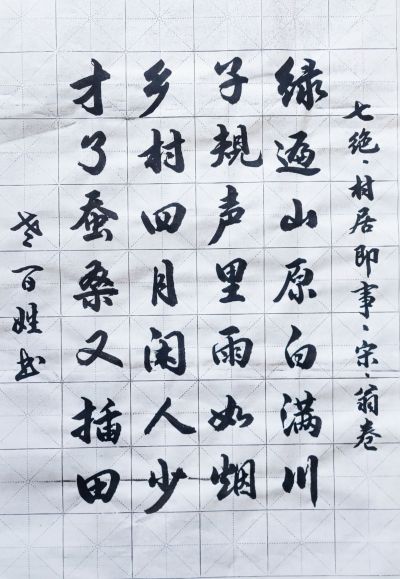 七绝·村居即事·宋·翁卷
绿遍山原白满川
子规声里雨如烟
乡村四月闲人少
才了蚕桑又插田
老百姓书